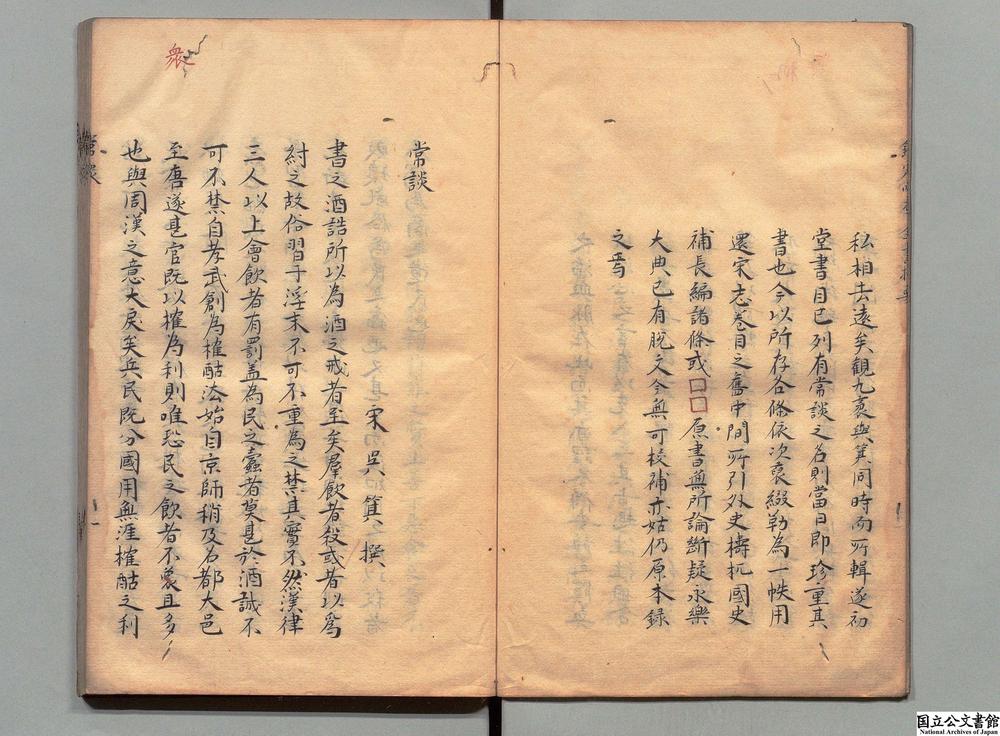 私相去遠矣觀九褱與箕同時而所輯遂初
堂書目已列有常談之名則當日即珍重其
書也今以所存各條依次裒綴勒為一帙用
還宋志卷目之舊中間所引外史檮杌國史
補長編諸條或□□原書無所論斷疑永樂
大典已有脫文今無可校補亦姑仍原本錄
之焉
常談
宋 吳箕 撰
書之酒誥所以為酒之戒者至矣羣飲者殺或者以為
紂之故俗習于浮末不可不重為之禁其實不然漢律
三人以上會飲者有罰盖為民之蠹者莫甚於酒誠不
可不禁自孝武創為榷酤法始自京師稍及名都大邑
至唐遂甚官既以榷為利則唯恐民之飲者不衆且多
也與周漢之意大戾矣兵民既分國用無涯榷酤之利
衆
常談
国立公文書館
National Archives of Japan